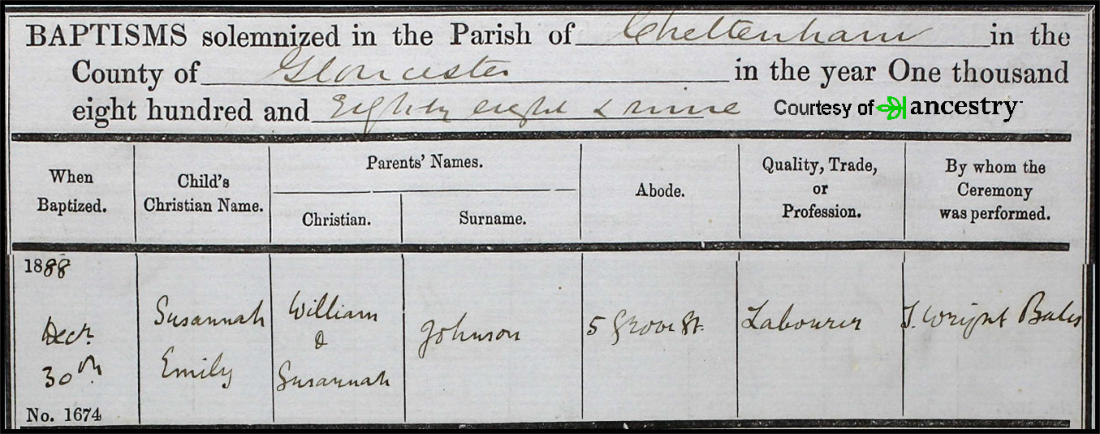 BAPTISMS solemnized in the Parish of Cheltenham in the
County of Gloucester in the year One thousand
eight hundred and Eighty eight & nine
Courtesy of ancestry
When
Baptized.
Child's
Christian Name.
Parents' Names.
Christian.
Surname.
Abode.
Quality, Trade,
or
Profession.
By whom the
Ceremony
was performed.
1888
Decr.
30th
No. 1674
Susannah
Emily
William
&
Susannah
Johnson
5 Grove St.
Labourer
J. Wright Bates